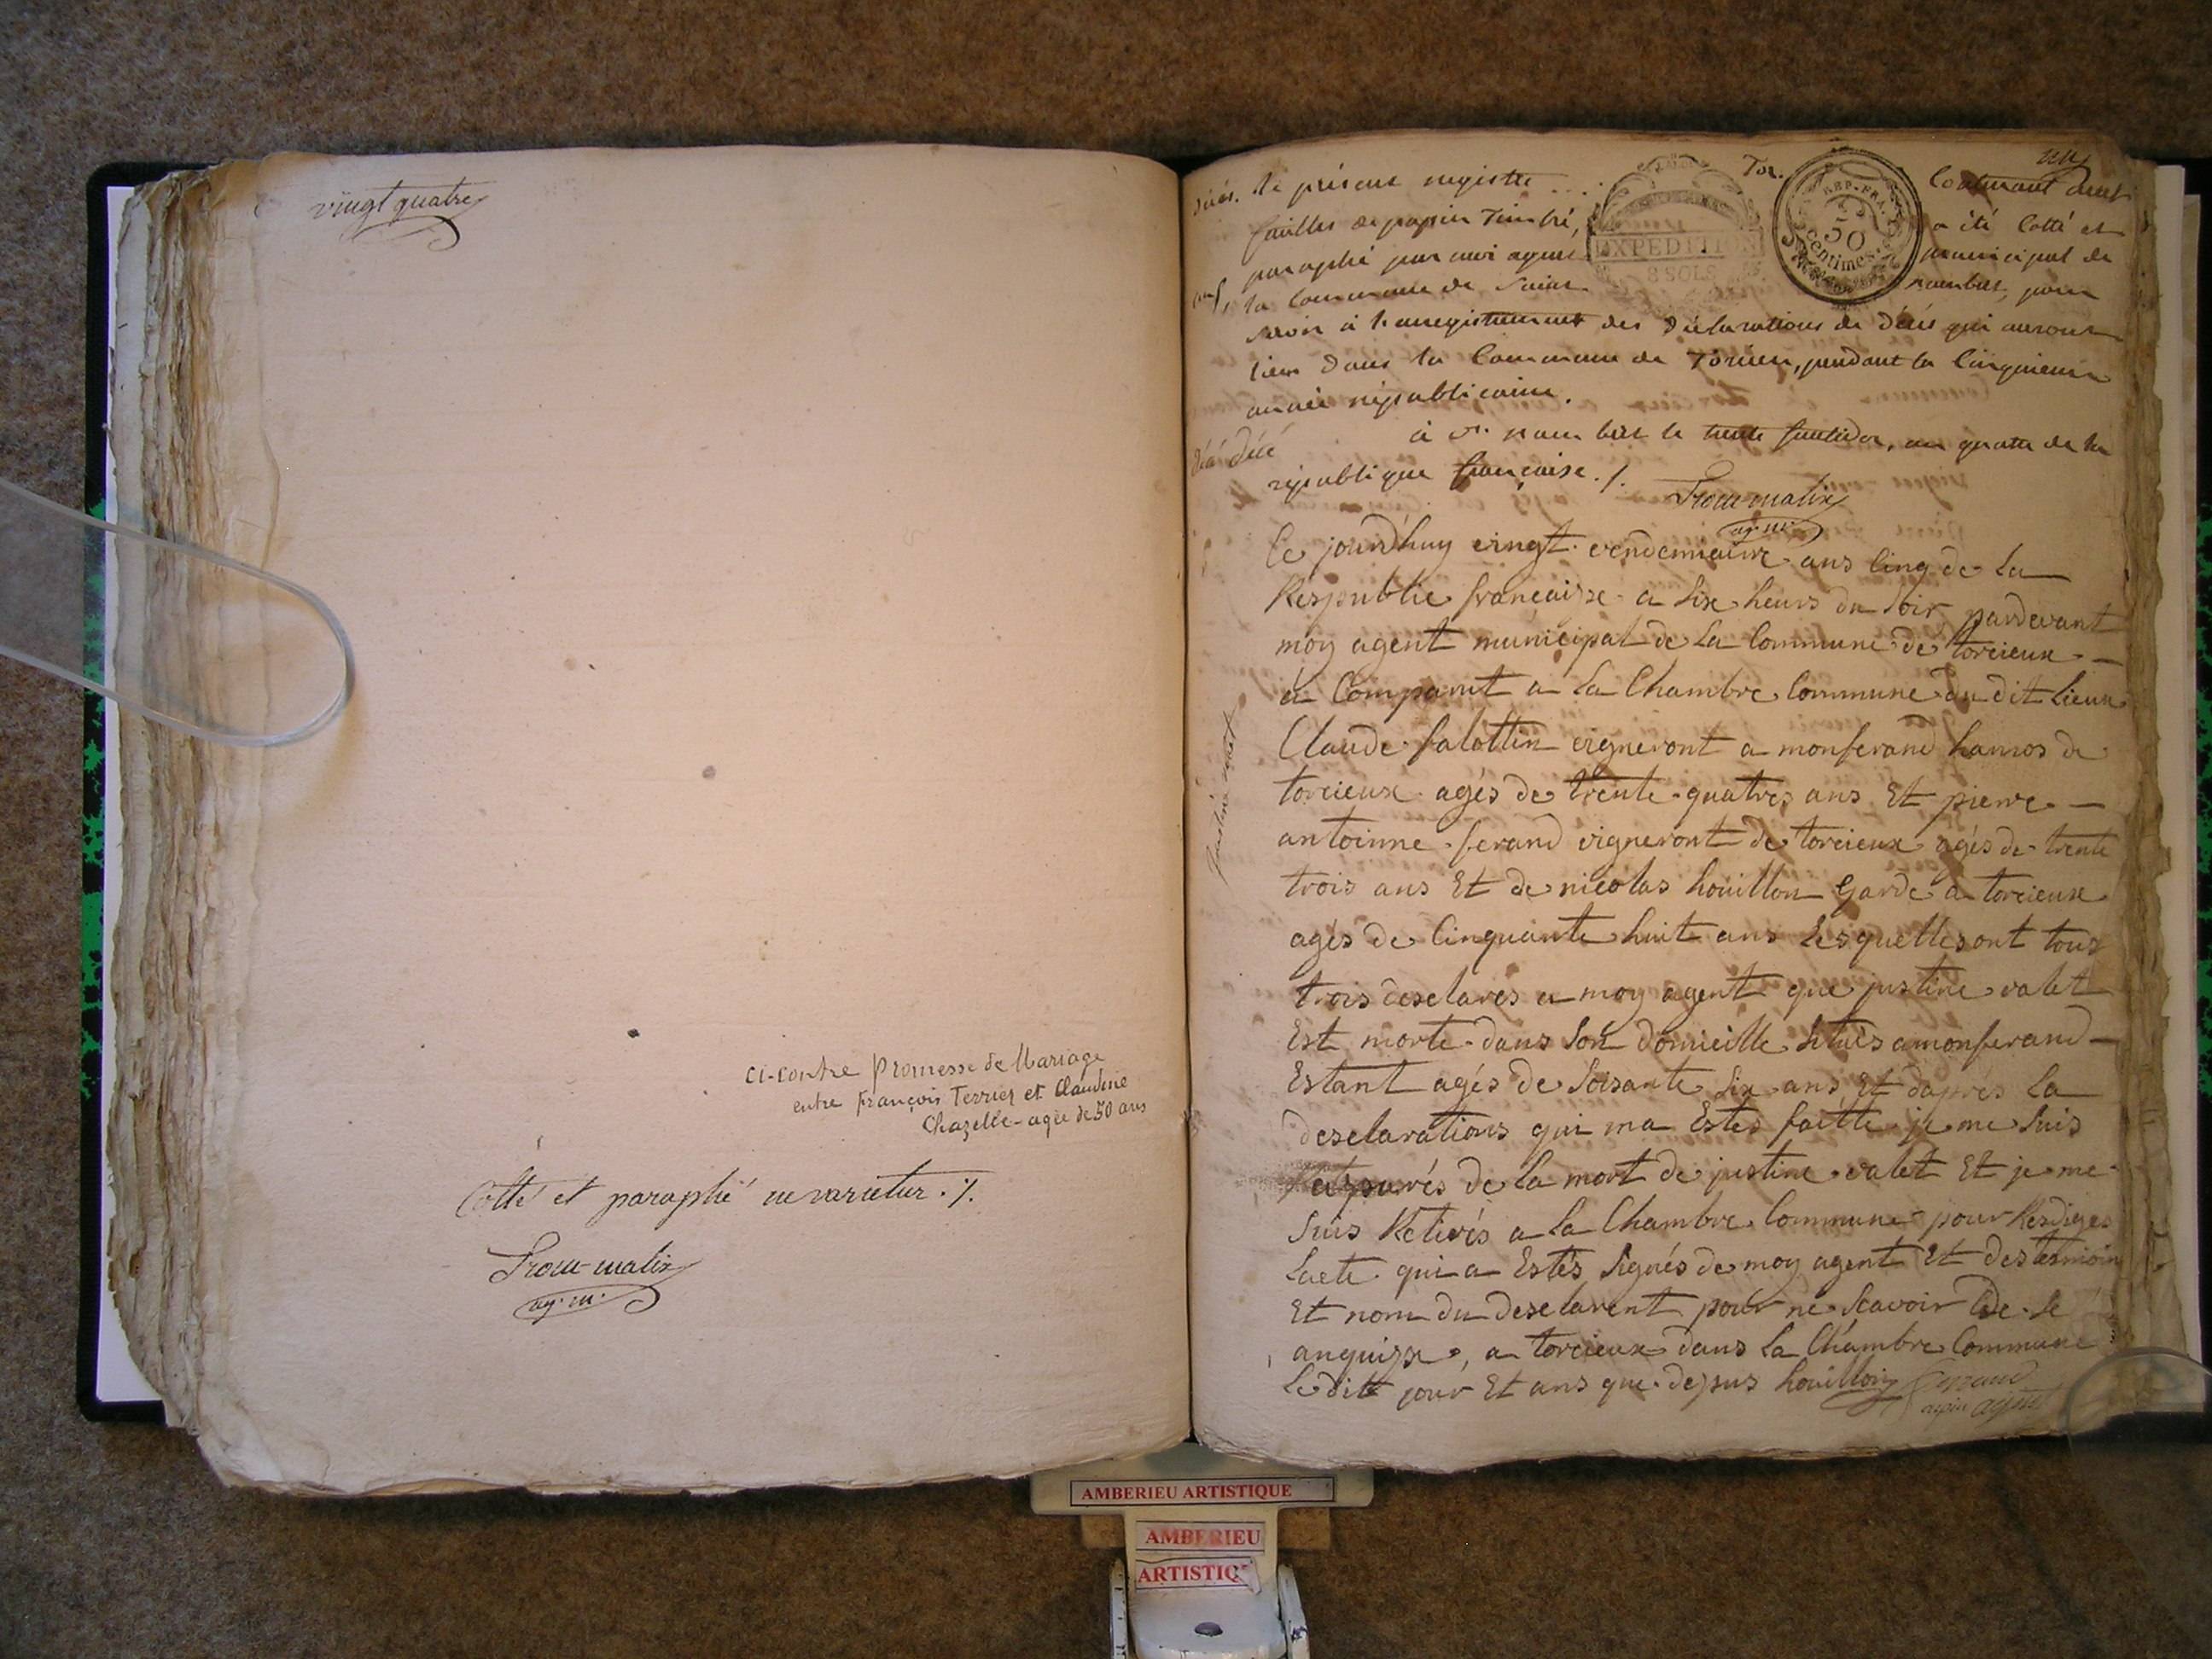 vingt quatre
ci-contre Promesse de Mariage
entre François Terrier et Claudine
Chazelle - agée de 50 ans
Cotté et paraphé ne varietur ./.
ag. m.
Tor.
décés. le présent registre contenant deux
feuilles de papier Timbré, a été Cotté et
paraphé par moi agent municipal de
la Commune de Saint rambert, pour
servir à l'enregistrement des Déclarations de Décés qui auront
lieu Dans la Commune de Torcieu, pendant la Cinquieme
année républicaine.
à St. rambert le trente fructidor, an quatre de la
république française ./.
ag. m.
EXPEDITION
8 SOLS
REP. FRA.
50
centimes
Justine valet
Ce jourd'huy vingt vendemiaire ans Cinq de la
Respublie francaisse a Six heurs du Soir pardevant
moy agent municipal de La Commune de torcieux
à Comparut a La Chambre Commune du dit Lieux
Claude falottin vigneront a monferand hamos de
torcieux agés de trente quatres ans Et pierre
antoinne ferand vigneront de torcieux agés de trente
trois ans Et de nicolas houillon Garde a torcieux
agés de Cinquante huit ans Lesquelles ont tous
trois desclarés a moy agent que justine valet
Est morte dans Son domicille Situés a monferand
Estant agés de Soisante Six ans Et daprés La
desclarations qui ma Estés faitte je me Suis
de La mort de justine valet Et je me
Suis Retirés a La Chambre Commune pour Resdiges
Lacte qui a Estés Signés de moy agent Et des tesmoin
Et nom du desclarent pour ne Scavoir de Se
anquisse, a torcieux dans La Chambre Commune
Ledite jour Et ans que depsus houillon ferand
AMBERIEU ARTISTIQUE
AMBERIEU
ARTISTIQ